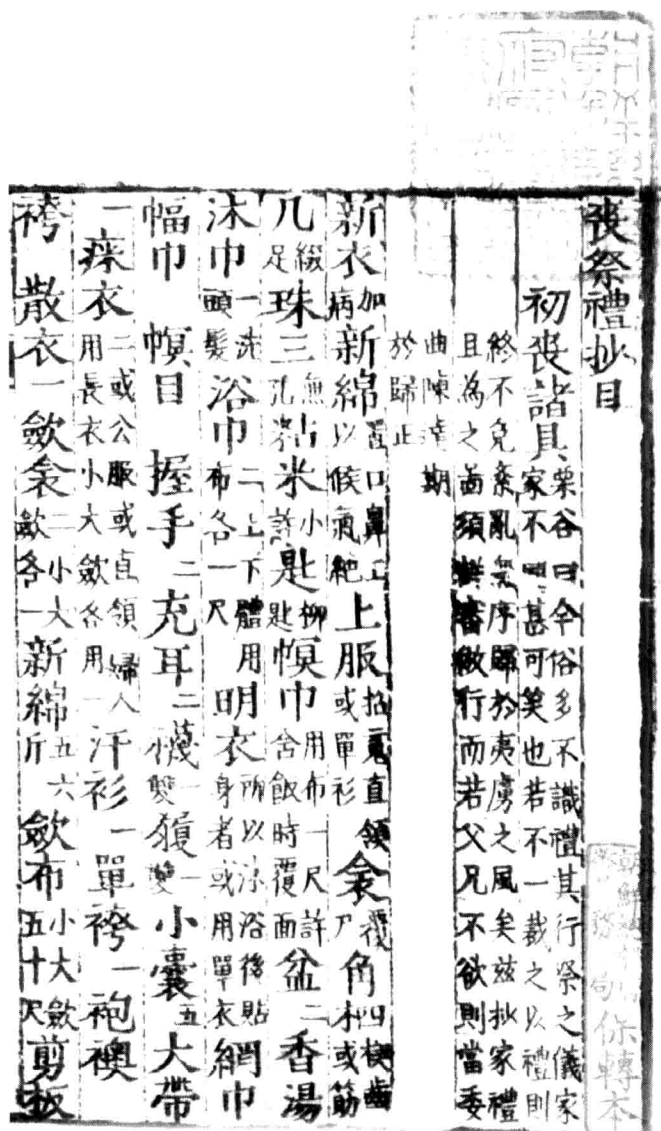 喪祭禮抄目
初喪諸具 栗谷曰今俗多不識禮其行祭之儀家
家不同甚可笑也若不一裁之以禮則
終不免紊亂無序歸於夷虜之風矣玆抄家禮
且爲之圖須詳審倣行而若父兄不欲則當委
曲陳達期
於歸正
新衣 加病 新綿 置口鼻上以候氣絶 上服 招魂直領或單衫 衾 覆尸 角柶 四楔齒或筋
几 綴足 珠三 無孔 粘米 小許 匙 柳匙 幎巾 用布一尺許含飯時覆面 盆 二 香湯
沐巾 一洗頭髮 浴巾 二上下體用布各一尺 明衣 所以沐浴後貼身者或用單衣 網巾
幅巾 幎目 握手 二 充耳 二 襪 一雙 履 一雙 小囊 五 大帶
一 㾗衣 二或公服或直領婦人用長衣小大斂各用一 汗衫 一 單袴 一 袍襖
袴 散衣 一 斂衾 二小大斂各一 新綿 五六斤 斂布 小大斂五十尺 剪板
保轉本